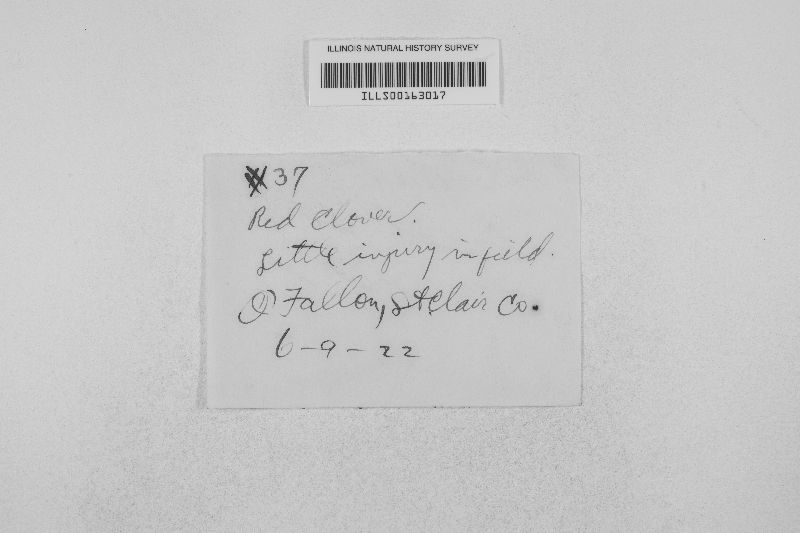 ILLINOIS NATURAL HISTORY SURVEY
ILLS00163017
#37
Red Clover.
Little injury in field.
O'Fallon, St Clair Co.
6-9-22